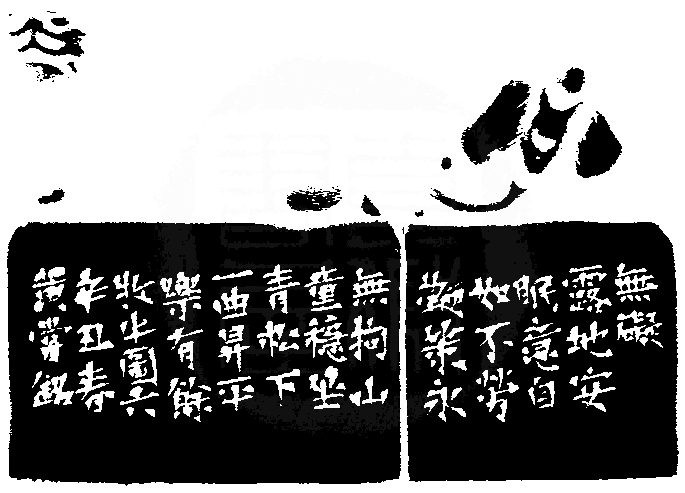 無礙
露地安
眠意自
如不勞
鞭策永
無拘山
童穩坐
青松下
一曲昇平
樂有餘
牧牛圖六
辛丑春